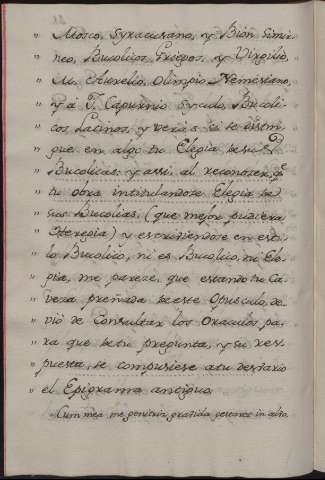 " Mosco, Syracusano, y Bión Smir-
" neo, Bucolicos Griegos, y Virgilio,
" M. Aurelio, Olimpio Nemesiano,
" y a T. Calpurnio Syculo Bucoli-
" cos Latinos, y verás si se distin-
" gue en algo tu Elegia de sus
" Bucolicas; y assi, al reconocer, qe
" tu obra intitulandose Elegia de
" sus Bucolicas, (que mejor pudiera
" Heregia) y escriviendose en esti-
" lo Bucolico, ni es Bucolico, ni Ele-
" gia, me parece, que estando tu Ca-
" veza preñada de este Opusculo, de-
" vió de Consultar los Oraculos pa-
" ra que de tu pregunta, y su res-
" puesta, se compusiese a tu desvario
" el Epigrama antiguo.
" Cum mea me genitrix gravida gestaret in alvo,